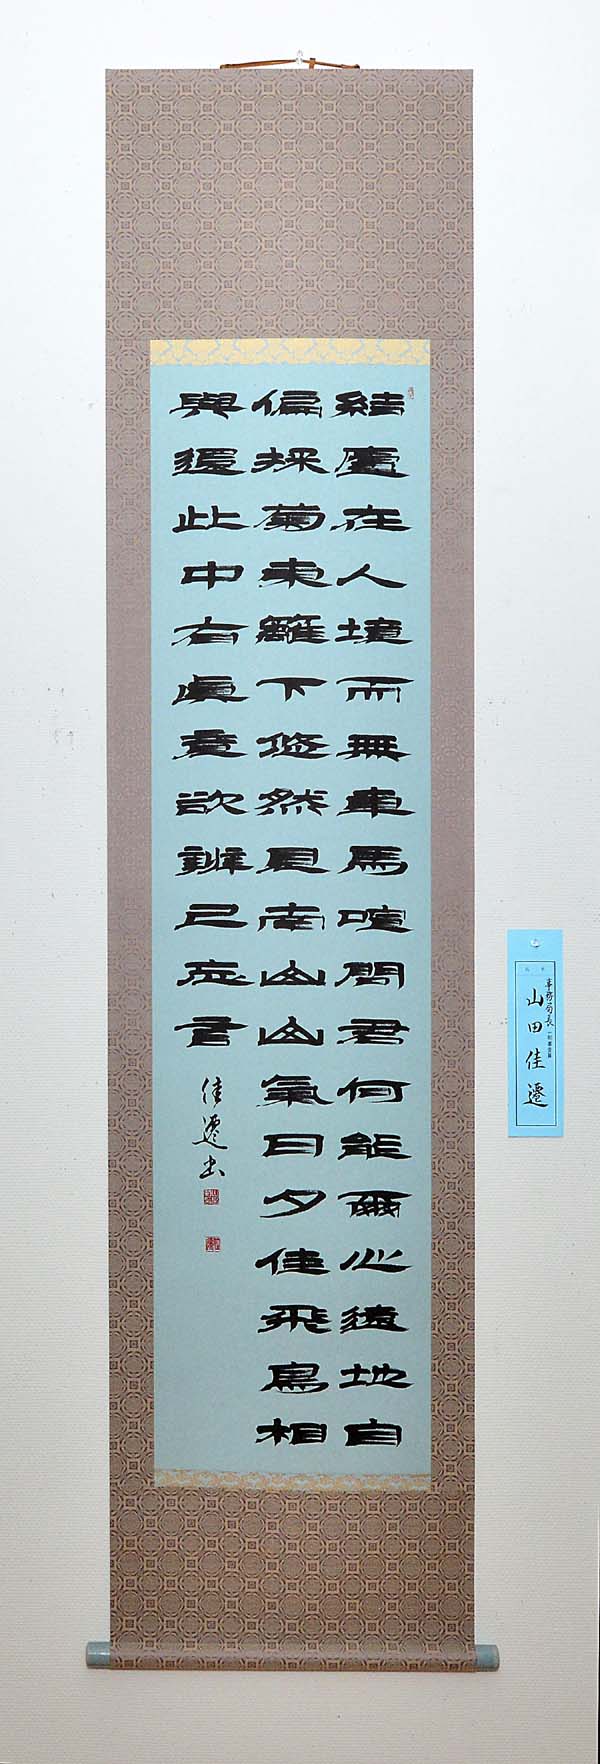 結廬在人境而無車馬喧問君何能爾心遠地自
偏採菊東籬下悠然見南山山氣日夕佳飛鳥相
與還此中有眞意欲辨已忘言
佳遷書
事務局長
山田佳遷